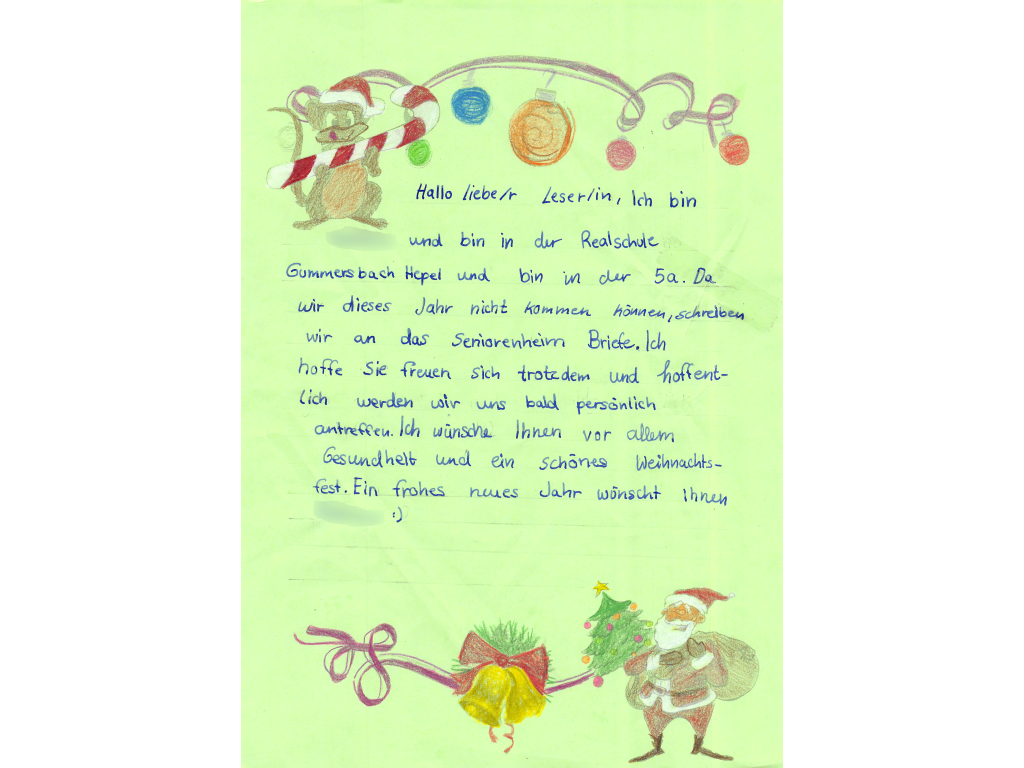 Hallo liebe/r Leser/in, Ich bin
und bin in der Realschule
Gummersbach Hepel und bin in der 5a. Da
wir dieses Jahr nicht kommen können, schreiben
wir an das Seniorenheim Briefe. Ich
hoffe Sie freuen sich trotzdem und hoffent-
lich werden wir uns bald persönlich
antreffen. Ich wünsche Ihnen vor allem
Gesundheit und ein schönes Weihnachts-
fest. Ein frohes neues Jahr wünscht Ihnen
:)